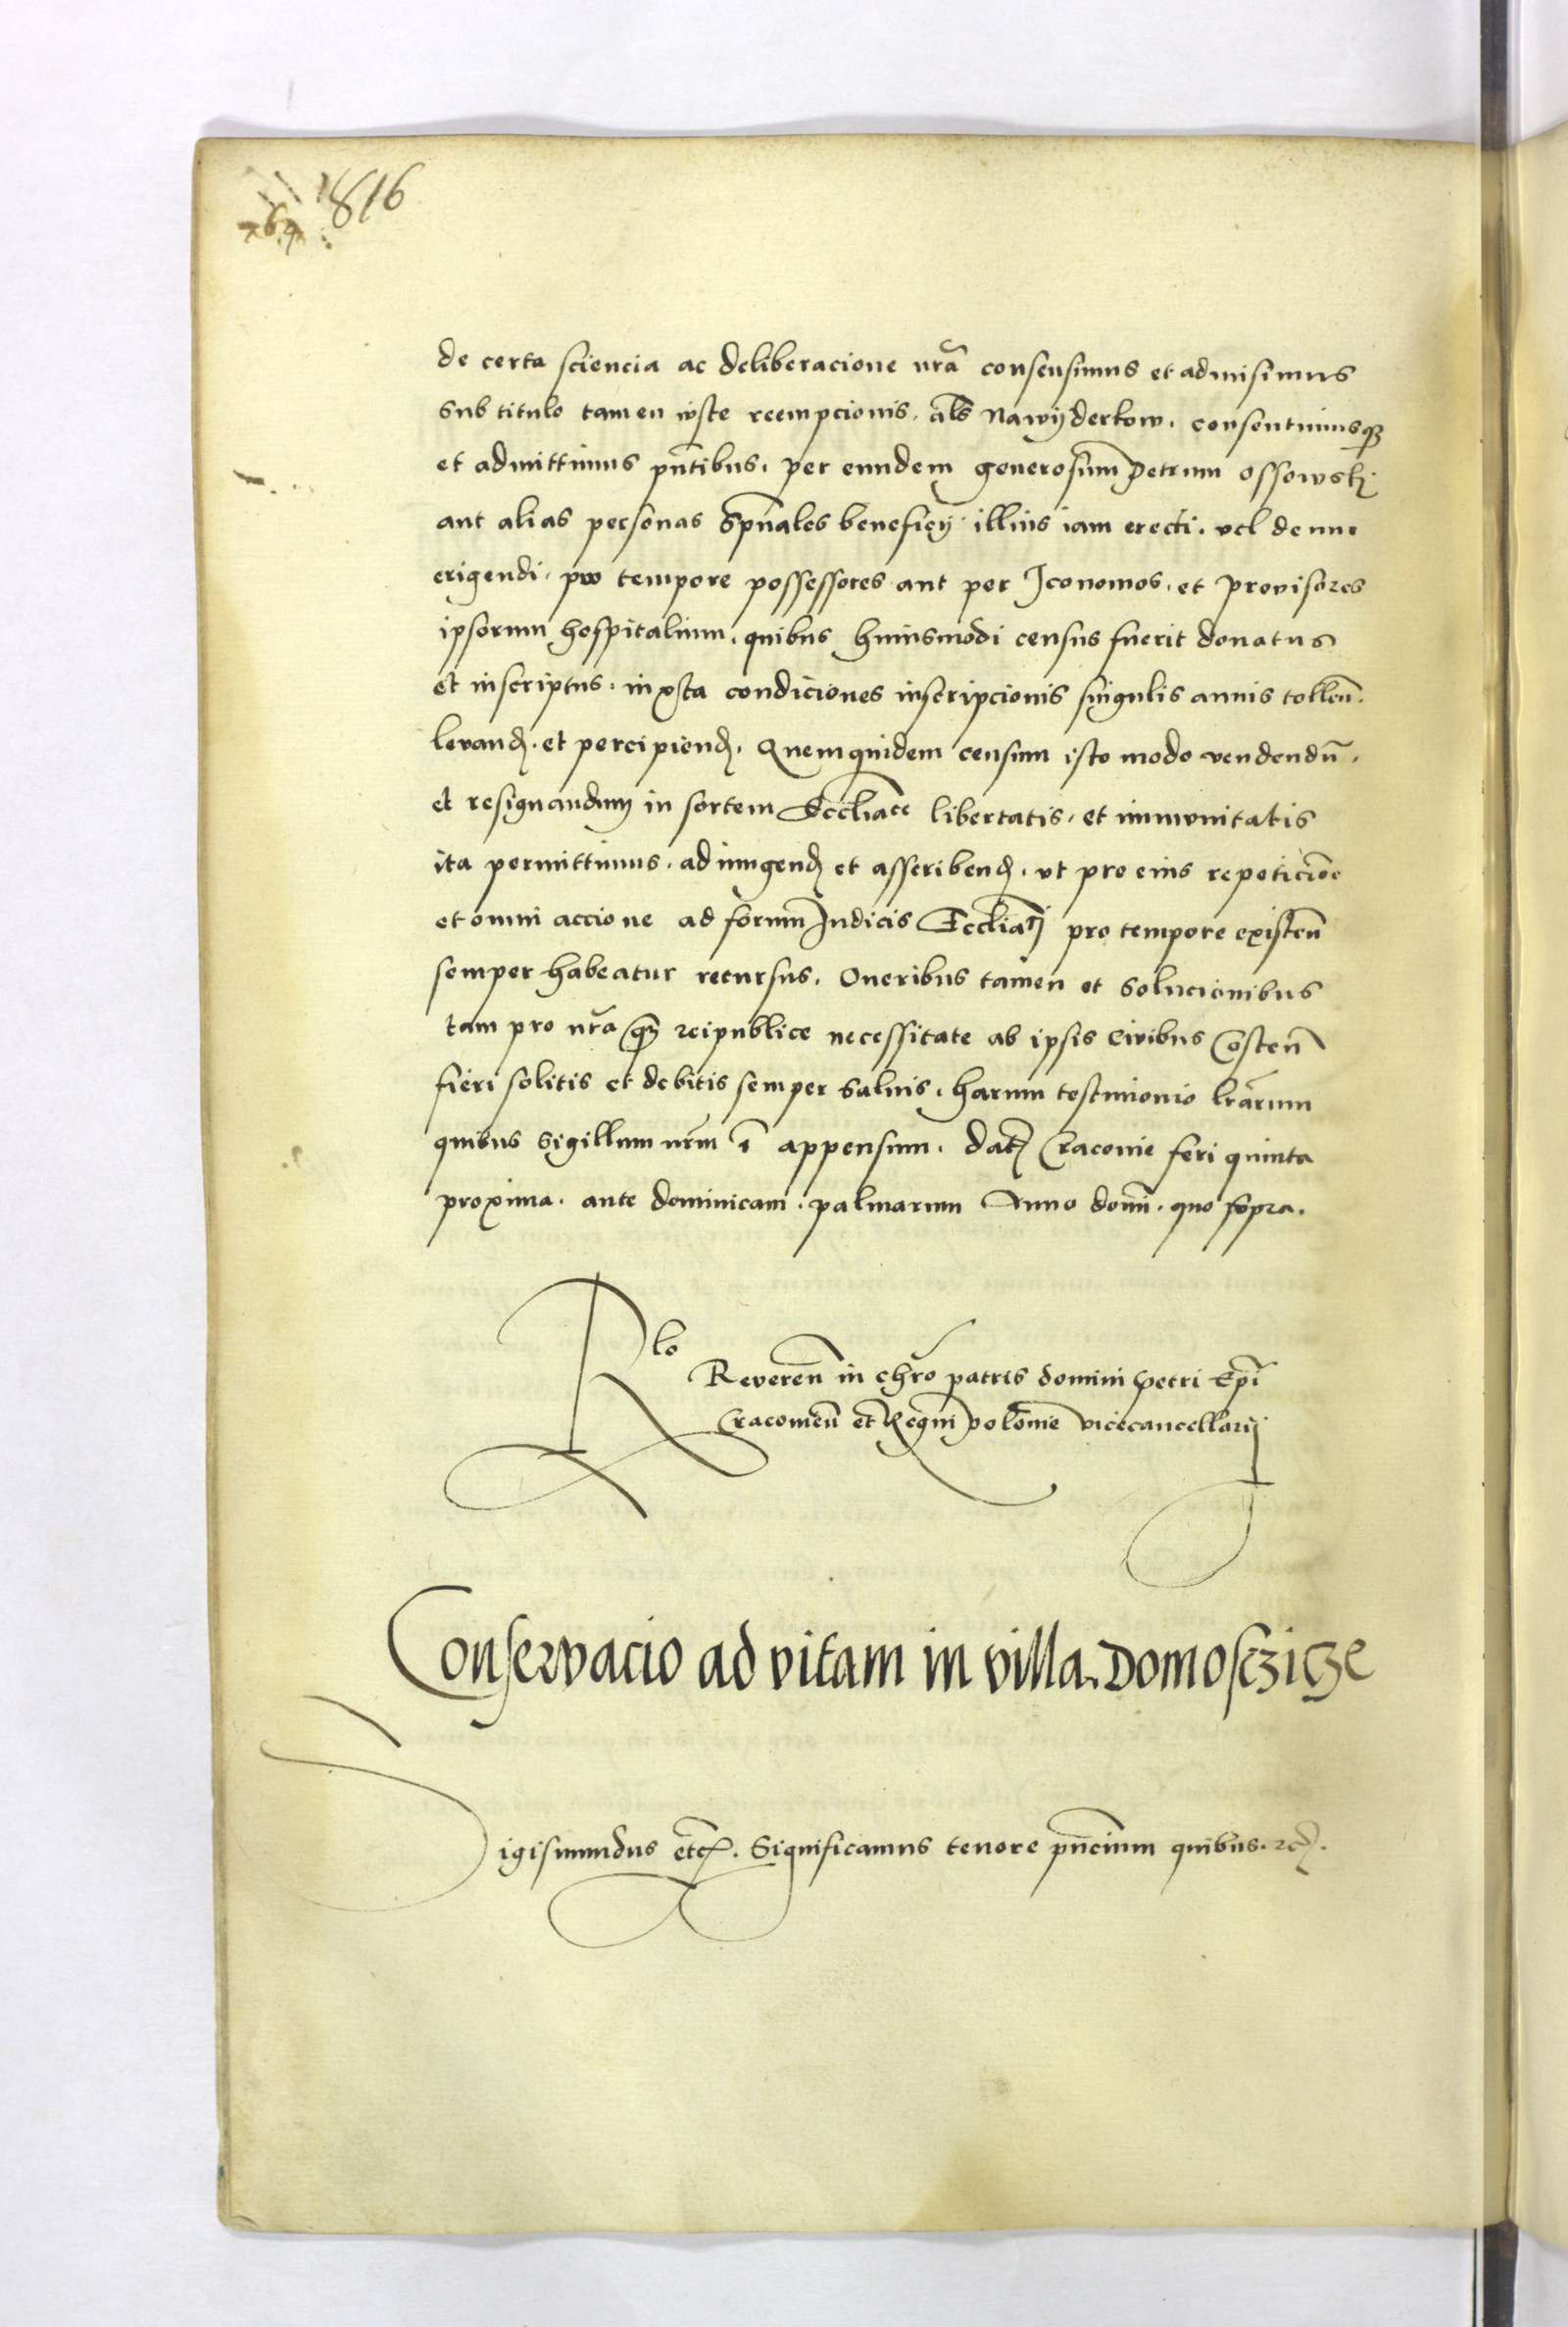 1816
de certa sciencia ac deliberacione nr̃a consensimus et admisimus
sub titulo tamen iuste reempcionis. al̃s Nawÿderkow. consentimusq3
et admittimus pñtibus. per eundem generosum Petrum ossowskj
aut alias personas spũales beneficÿ illius iam erecti. vel denuo
erigendi. pro tempore possessores aut per Jconomos. et prouisores
ipsorum hospitalium. quibus huiusmodi census fuerit donatus
et inscriptus. iuxta condiciones inscripcionis singulis annis tolleñ.
leuanđ. et percipienđ. Quemquidem censum isto modo vendendũ.
et resignandum in sortem Eccl̃iace libertatis. et immunitatis
ita permittimus. adiungenđ et asscribenđ. vt pro eius repeticiõe
et omni accione ad forum Judicis Eccl̃iatj pro tempore existeñ
semper habeatur recursus. Oneribus tamen et solucionibus
tam pro nr̃a q̃ reipublice necessitate ab ipsis Ciuibus Costeñ
fieri solitis et debitis semper saluis. harum testimonio lr̃arum
quibus Sigillum nr̃m ẽ appensum. dat̃ Cracouie feri quinta
proxima. ante dominicam. palmarum Anno domĩ. quo supra.
Rlo
Revereñ in chr̃o patris domini Petri Ep̃i
Cracouieñ et Regni polonie vicecancellarÿ
Conservacio ad vitam in villa. Domosczicze
Sigismundus etc̃. Significamus tenore pñcium quibus. rc̃.